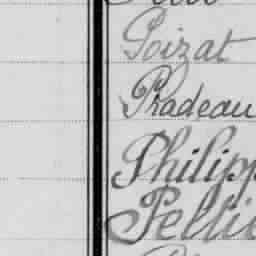 Poizat
Pradeau
Philipp
Pellie